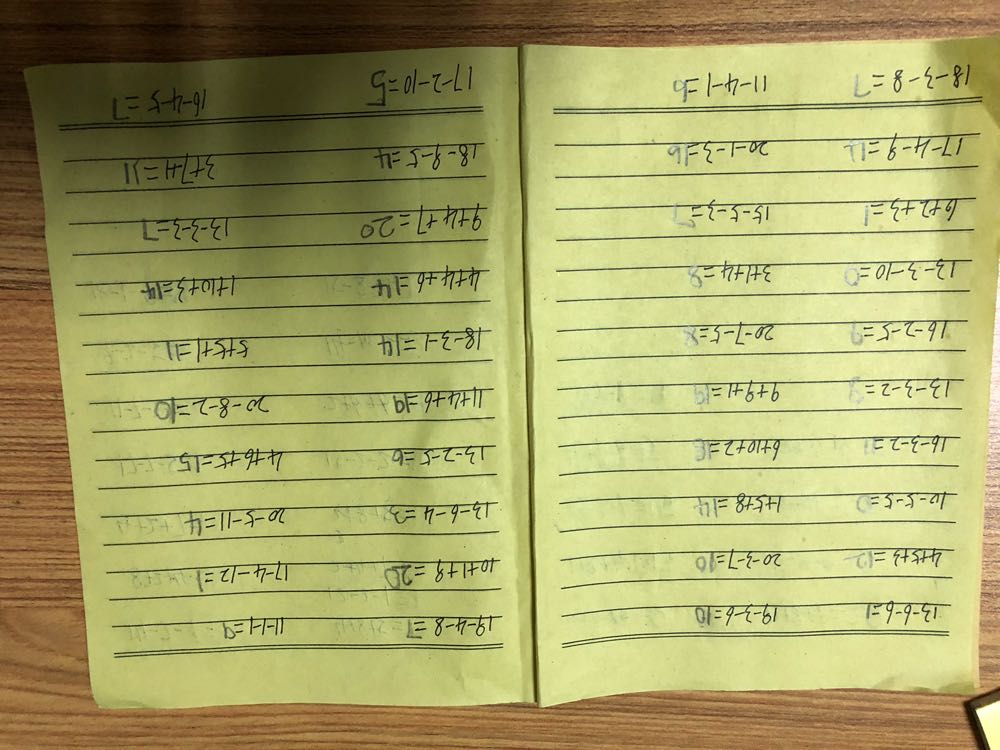 13-6-6=1 19-3-6=10
4+5+3=12 20-3-7=10
10-5-5=0 1+5+8=14
16-3-2=11 6+10+2=18
13-3-2=8 9+9+1=19
16-2-5=9 20-7-5=8
13-3-10=0 3+1+4=8
6+2+3=1 15-5-3=7
17-4-9= 20-1-3=16
18-3-8=7 11-4-1=6
19-4-8=7 11-1-1=9
10+1+9=20 17-4-12=1
13-6-4=3 20-5-11=4
13-2-5=6 4+6+5=15
11+4+6=19 20-8-2=10
18-3-1=14 5+5+1=11
4+4+6=14 1+10+3=14
9+4+7=20 13-3-3=7
18-9-5=4 3+7+1=11
17-2-10=5 16-4-5=7